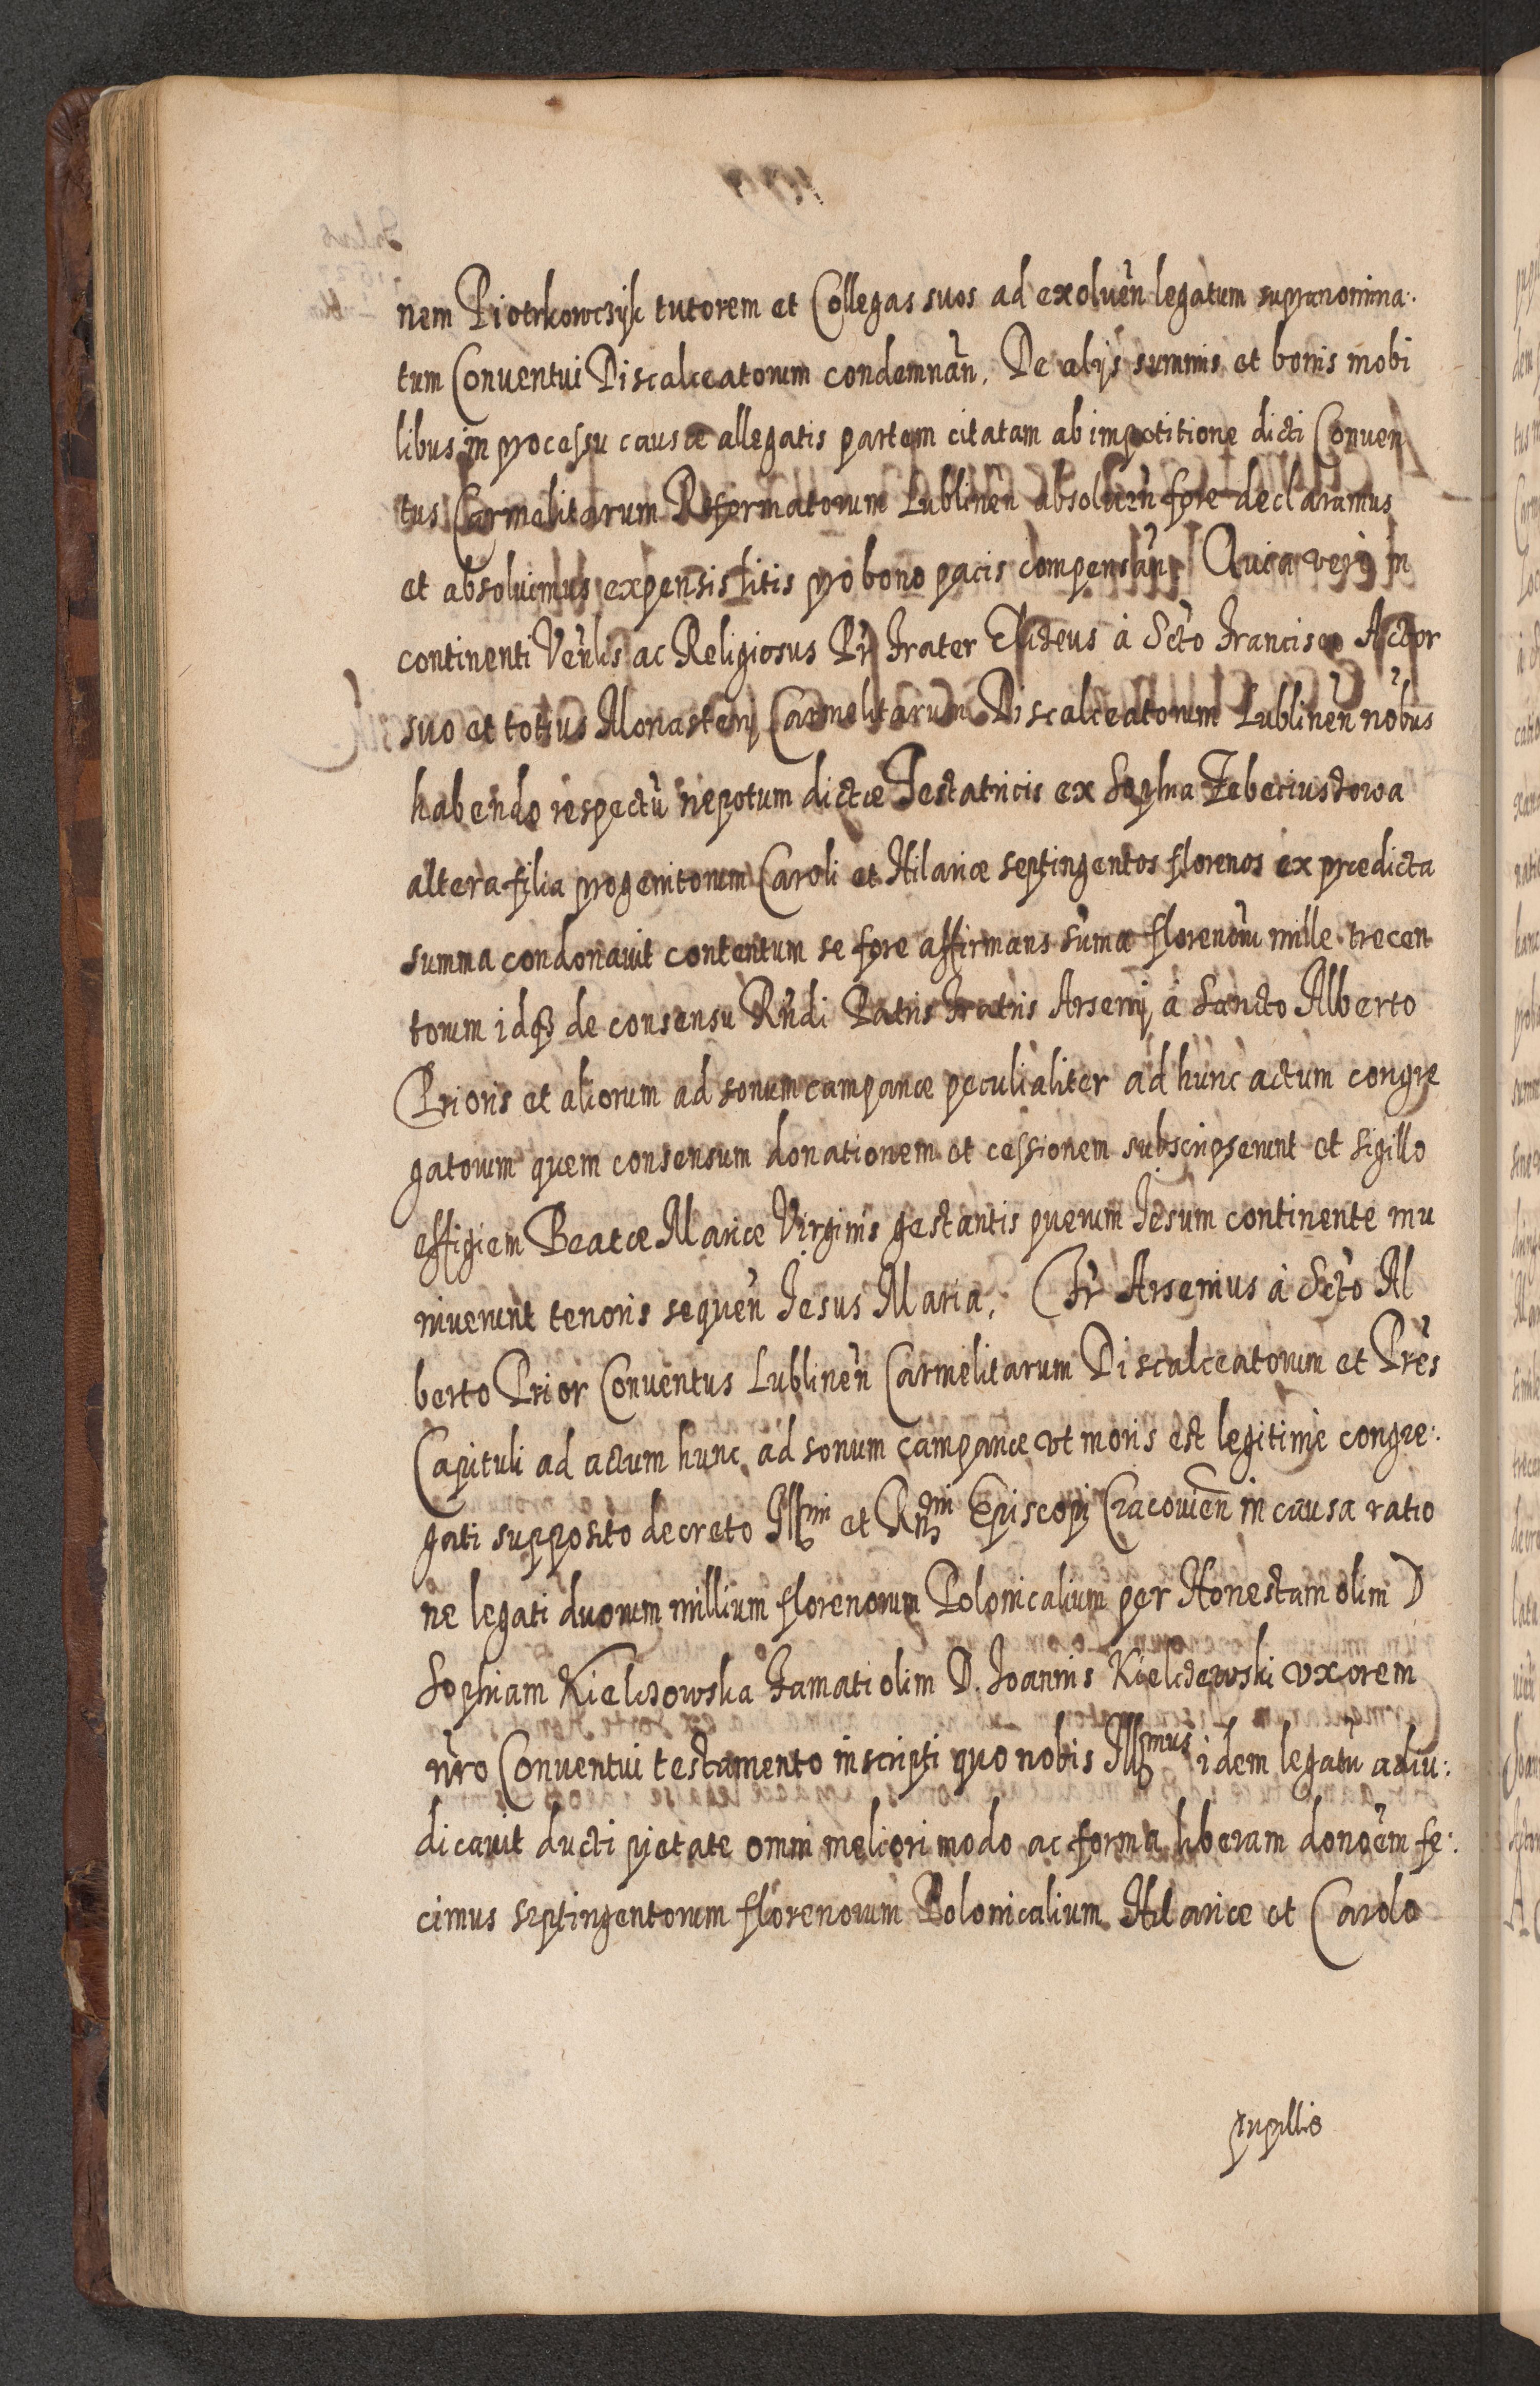 nem Piotrkowczyk tutorem et Collegas suos ad exoluen̄ legatum supranomina:
tum Conuentui Discalceatorum condemnan̄. De alijs summis et bonis mobi
libus in processu causæ allegatis partem citatam ab impetitione dicti Conuen
tus Carmelitarum Reformatorum Lublinen̄ absoluen̄ fore declaramus
et absoluimus expensis litis pro bono pacis compensan̄. Quia vero in
continenti Ven̄lis ac Religiosus Pr̄ Frater Eliseus à Scto Francisco Actor
suo et totius Monasterij Carmelitarum Discalceatorum Lublinen̄ nōbus
habendo respectū nepotum dictæ Testatricis ex Sophia
altera filia progenitorum Caroli et Hilariæ septingentos florenos ex prædicta
summa condonauit contentum se fore affirmans sūmæ florenōru mille trecen
torum idq̃ de consensu Rn̄di Patris Fratris Arsenij à Sancto Alberto
Prioris et aliorum ad sonum campanæ peculialiter ad hunc actum congre
gatorum quem consensum donationem et cessionem subscripserunt et sigillo
effigiem Beatæ Mariæ Virginis gestantis puerum Jesum continente mu
niuerunt tenoris sequen̄ Jesus Maria. Fr̄ Arsenius à Scto Al
berto Prior Conuentus Lublinen̄ Carmelitarum Discalceatorum et Prēs
Capituli ad actum hunc ad sonum campanæ vt moris est legitime congre:
gati supposito decreto Illmi et Rnmi Episcopi Cracouien̄ in causa ratio
ne legati duorum millium florenorum Polonicalium per Honestam olim D
Sophiam Kielczowska Famati olim D. Joannis Kielczewski vxorem
nr̄o Conuentui testamento inscripti quo nobis Illmus idem legatū adiu:
dicauit ducti pietate omni meliori modo ac forma liberam donoēm fe:
cimus septingentorum florenorum Polonicalium Hilariæ et Carolo
pupillis